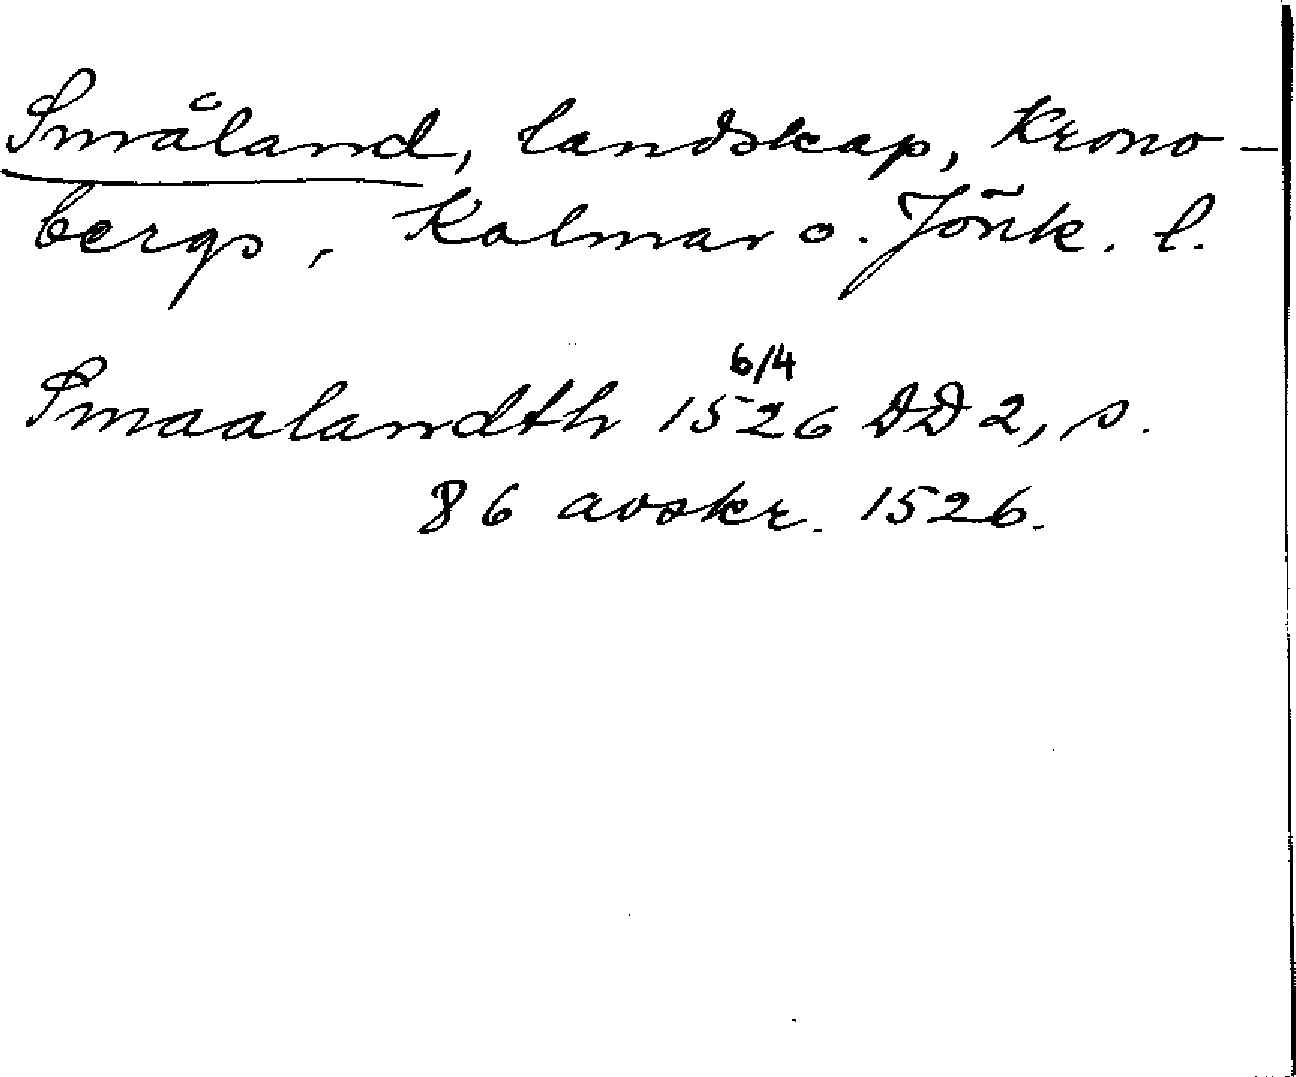 Småland, landskap, Krono-
bergs, Kalmar o. Jönk. l.
6/4
Smaalandth 1526 DD 2, s.
86 avskr. 1526.